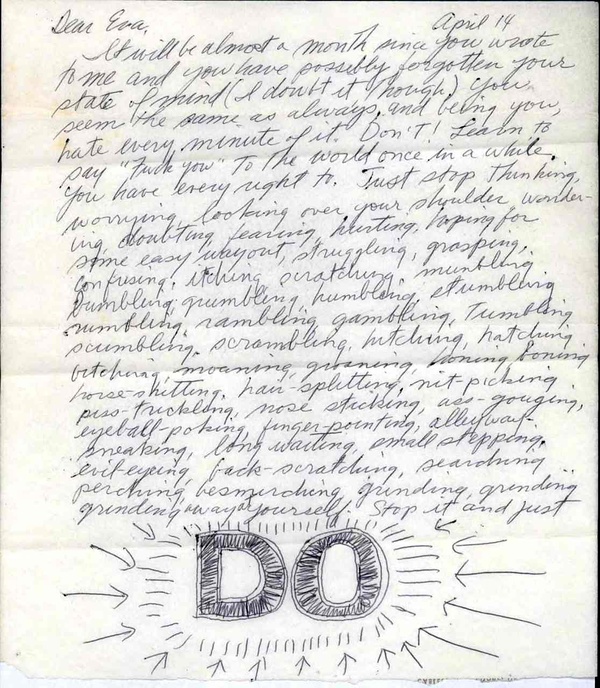 Dear Eva, April 14
It will be almost a month since you wrote
to me and you have possibly forgotten your
state of mind (I doubt it though). You
seem the same as always, and being you,
hate every minute of it. Don't! Learn to
say "Fuck You" to the world once in a while.
You have every right to. Just stop thinking,
worrying, looking over your shoulder wonder-
ing, doubting, fearing, hurting, hoping for
some easy way out, struggling, grasping,
confusing, itching, scratching, mumbling,
bumbling, grumbling, humbling, stumbling,
rumbling, rambling, gambling, tumbling,
scumbling, scrambling, hitching, hatching,
bitching, moaning, groaning, honing, boning,
horse-shitting, hair-splitting, nit-picking,
piss-trickling, nose sticking, ass-gouging,
eyeball-poking, finger-pointing, alleyway-
sneaking, long waiting, small stepping,
evil-eyeing, back-scratching, searching,
perching, besmirching, grinding, grinding,
grinding away at yourself. Stop it and just
DO